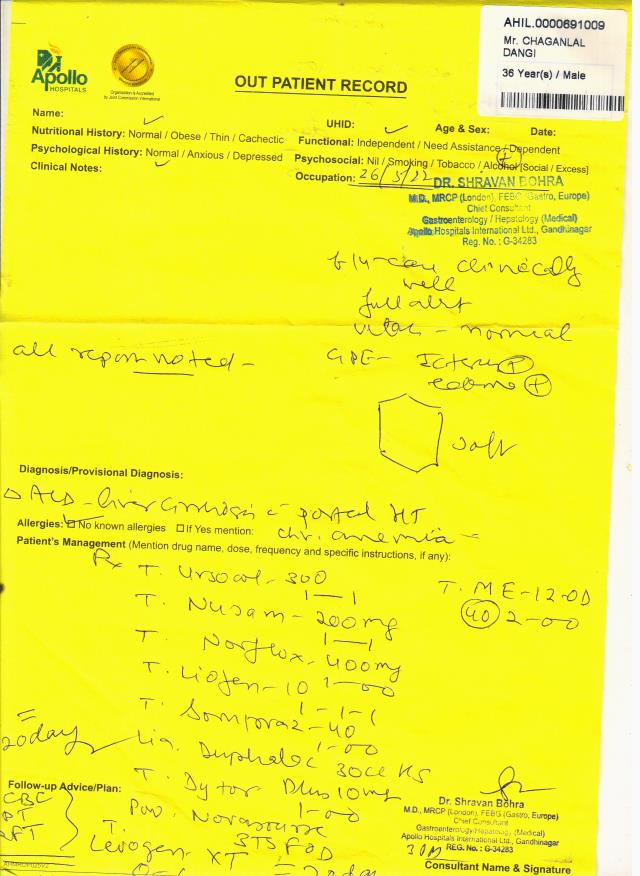 AHIL.0000691009
Mr. CHAGANLAL
DANGI
36 Year(s) / Male
Apollo
HOSPITALS
Organization is Accredited
by Joint Commission International
OUT PATIENT RECORD
Name:
UHID:
Age & Sex:
Date:
Nutritional History: Normal / Obese / Thin / Cachectic
Functional: Independent / Need Assistance / Dependent
Psychological History: Normal / Anxious / Depressed
Psychosocial: Nil / Smoking / Tobacco / Alcohol [Social / Excess]
Clinical Notes:
Occupation: 26/5/22
DR. SHRAVAN BOHRA
M.D., MRCP (London), FEBG (Gastro, Europe)
Chief Consultant
Gastroenterology / Hepatology (Medical)
Apollo Hospitals International Ltd., Gandhinagar
Reg. No. : G-34283
clinically
well
full alert
vitals - normal
all report noted -
GPE- Icterus +
+
soft
Diagnosis/Provisional Diagnosis:
liver cirrhosis portal HT
Allergies: No known allergies If Yes mention:
chr. anemia -
Patient's Management (Mention drug name, dose, frequency and specific instructions, if any):
Rx T. Ursocol-300
1-1
T. ME-12-OD
40 2-00
T. Nusam-200mg
1-1
T. Norflox-400mg
1-00
T. Liofen-10
1-1-1
T. Sompraz-40
1-00
= 20 day
Liq. Duphalac 30cc HS
T. Dytor Plus 10mg
1-00
Follow-up Advice/Plan:
CBC
PT
LFT
Pow. Novasource
3TSF OD
T. Levogen XT
= 20 day
Dr. Shravan Bohra
M.D., MRCP (London), FEBG (Gastro, Europe)
Chief Consultant
Gastroenterology/Hepatology (Medical)
Apollo Hospitals International Ltd., Gandhinagar
Reg. No. : G-34283
Consultant Name & Signature